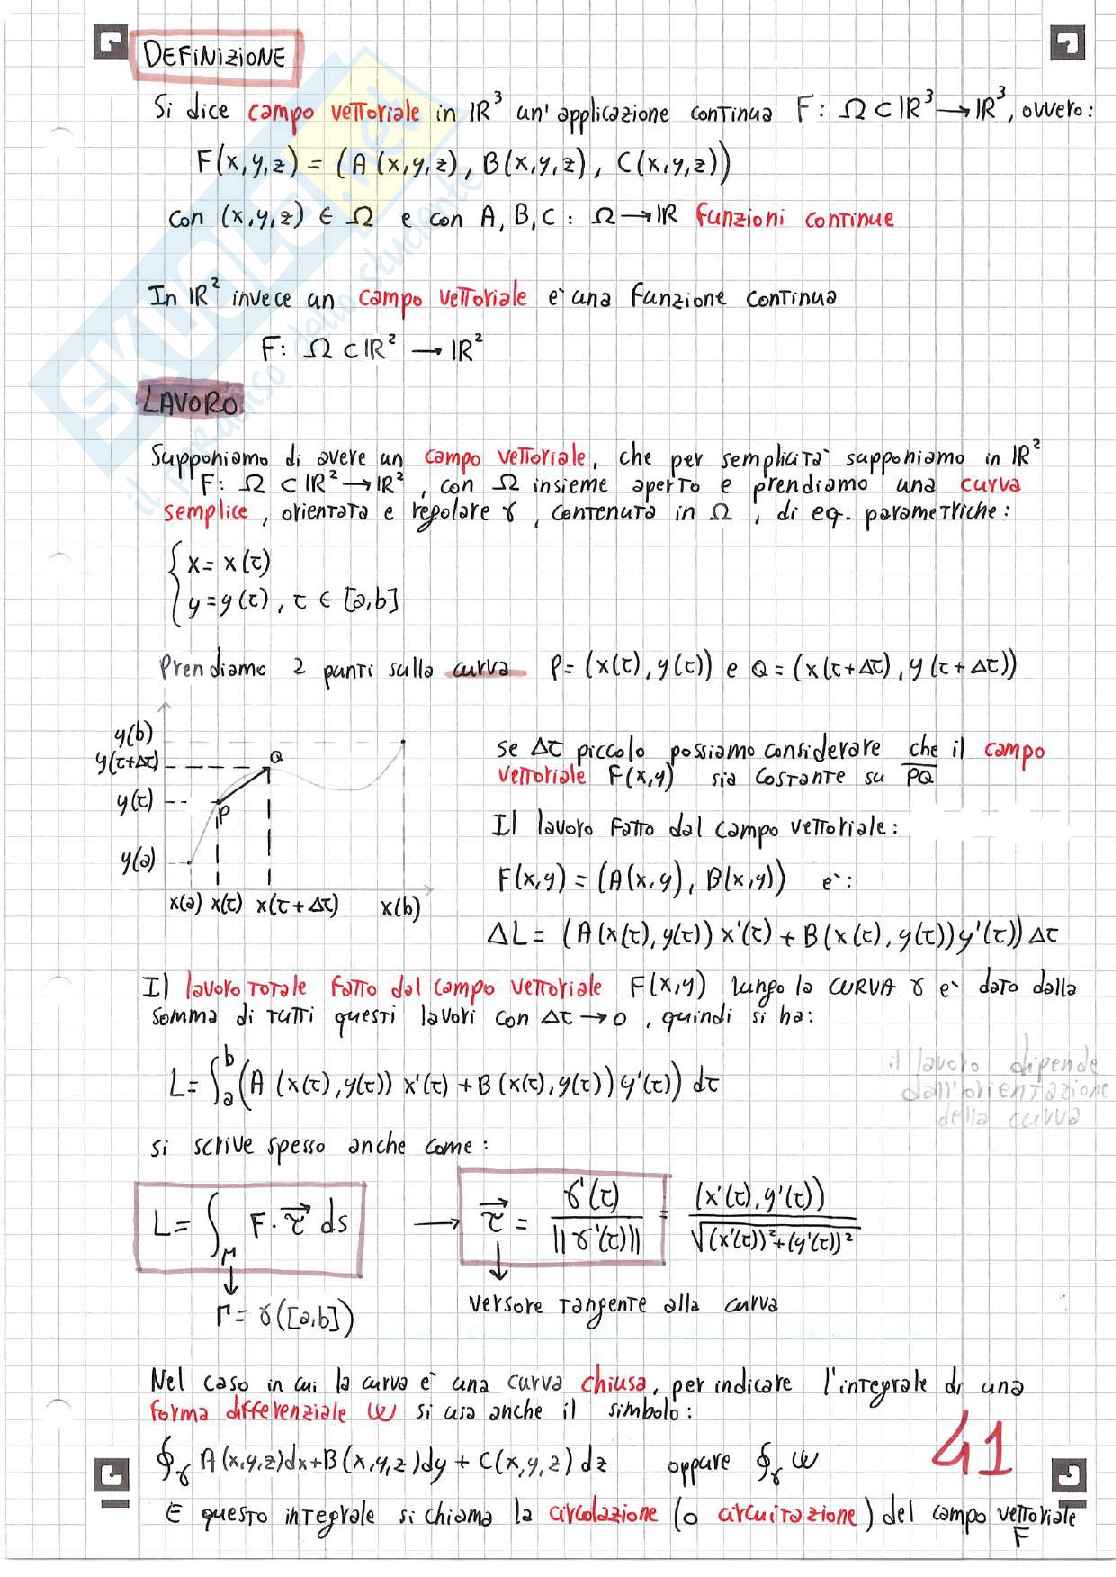 DEFINIZIONE
Si dice campo vettoriale in IR³ un'applicazione continua F: Ω ⊂ IR³ → IR³, ovvero:
F(x,y,z) = (A(x,y,z), B(x,y,z), C(x,y,z))
con (x,y,z) ∈ Ω e con A, B, C : Ω → IR funzioni continue
In IR² invece un campo vettoriale e' una funzione continua
F: Ω ⊂ IR² → IR²
LAVORO
Supponiamo di avere un campo vettoriale, che per semplicità supponiamo in IR²
F: Ω ⊂ IR² → IR², con Ω insieme aperto e prendiamo una curva
semplice, orientata e regolare γ, contenuta in Ω, di eq. parametriche:
{ x = x(τ)
y = y(τ), τ ∈ [a,b]
Prendiamo 2 punti sulla curva P = (x(τ), y(τ)) e Q = (x(τ+Δτ), y(τ+Δτ))
y(b)
y(τ+Δτ)
Q
y(τ)
P
y(a)
x(a) x(τ) x(τ+Δτ) x(b)
se Δτ piccolo possiamo considerare che il campo
vettoriale F(x,y) sia costante su PQ
Il lavoro fatto dal campo vettoriale:
F(x,y) = (A(x,y), B(x,y)) e':
ΔL = (A(x(τ),y(τ)) x'(τ) + B(x(τ), y(τ)) y'(τ)) Δτ
Il lavoro totale fatto dal campo vettoriale F(x,y) lungo la CURVA γ e' dato dalla
somma di tutti questi lavori con Δτ → 0, quindi si ha:
L = ∫ₐᵇ (A(x(τ),y(τ)) x'(τ) + B(x(τ), y(τ)) y'(τ)) dτ
il lavoro dipende
dall'orientazione
della curva
si scrive spesso anche come:
L = ∫_Γ F · τ⃗ ds → τ⃗ = γ'(τ) / ||γ'(τ)|| = (x'(τ), y'(τ)) / √((x'(τ))² + (y'(τ))²)
Γ = γ([a,b])
versore tangente alla curva
Nel caso in cui la curva e' una curva chiusa, per indicare l'integrale di una
forma differenziale ω si usa anche il simbolo:
∮_γ A(x,y,z)dx + B(x,y,z)dy + C(x,y,z)dz oppure ∮_γ ω
41
E questo integrale si chiama la circolazione (o circuitazione) del campo vettoriale
F
SKUOLA.net